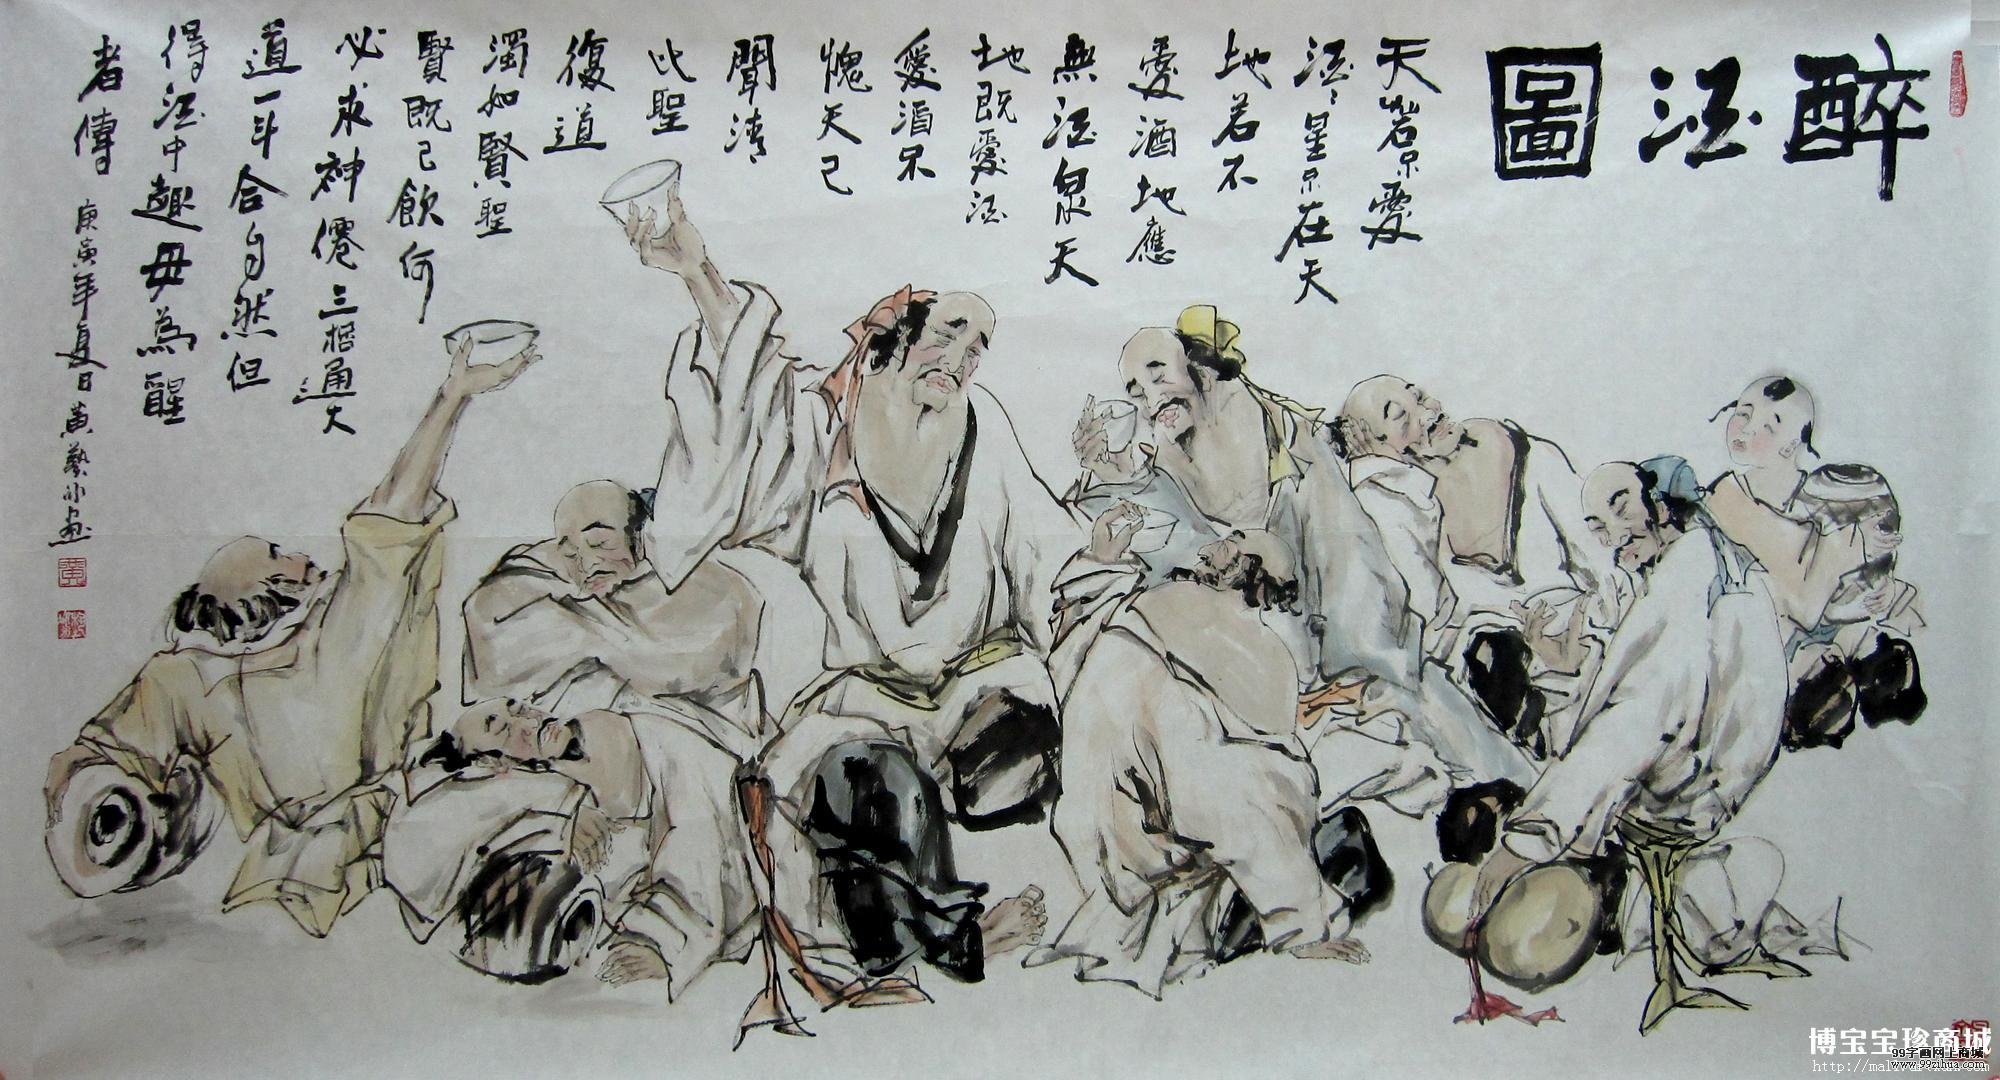 醉酒圖
天若不愛
酒〻星不在天
地若不
愛酒地應
無酒泉天
地既愛酒
愛酒不
愧天已
聞清
比聖
復道
濁如賢聖
賢既已飲何
必求神僊三桮通大
道一斗合自然但
得酒中趣毋為醒
者傳
庚寅年夏日黃藝画
博宝宝珍商城
99字画网上商城
www.99zihua.com